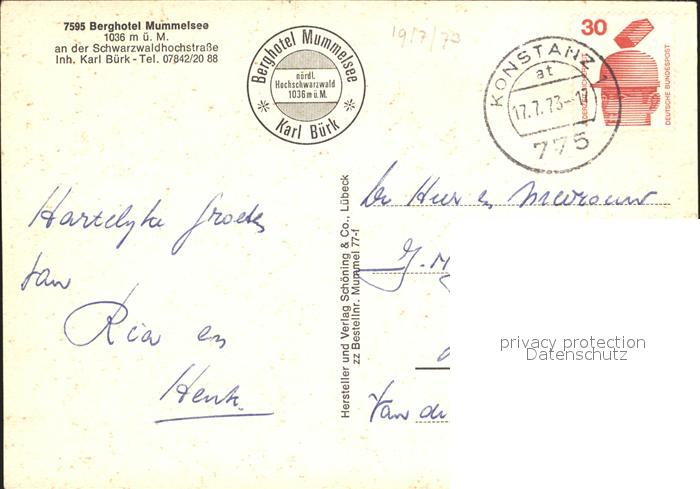 7595 Berghotel Mummelsee
1036 m ü. M.
an der Schwarzwaldhochstraße
Inh. Karl Bürk - Tel. 07842/20 88
Berghotel Mummelsee
nördl.
Hochschwarzwald
1036 m ü. M.
Karl Bürk
19/7/73
KONSTANZ 1
at
17.7.73-17
775
30
DEUTSCHE BUNDESPOST
Hartelyke groeten
van
Ria en
Henk
Hersteller und Verlag Schöning & Co., Lübeck
zz Bestellnr. Mummel 77-f
De Heer en Mevrouw
J.
Van de
privacy protection
Datenschutz